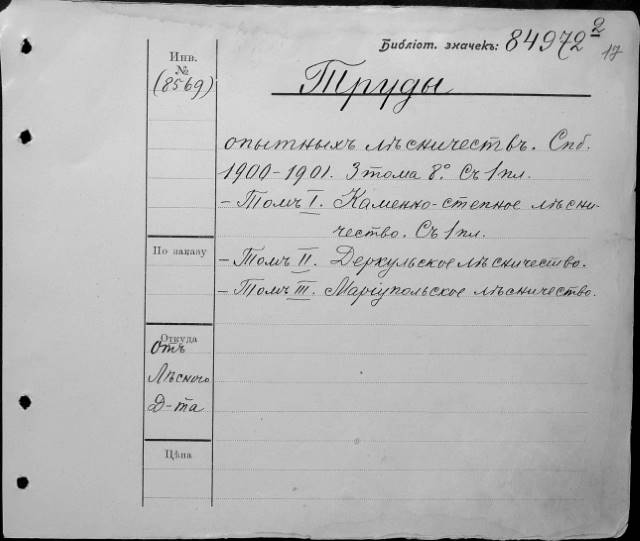 Библіот. значекъ: 84972 2
17
Инв.
№
(8569)
Труды
опытныхъ лѣсничествъ. Спб.
1900-1901. 3 тома 8º. Съ 1 пл.
- Томъ I. Каменно-степное лѣсни-
чество. Съ 1 пл.
По заказу
- Томъ II. Деркульское лѣсничество.
- Томъ III. Маріупольское лѣсничество.
Откуда
Отъ
Лѣсного
Д-та
Цѣна